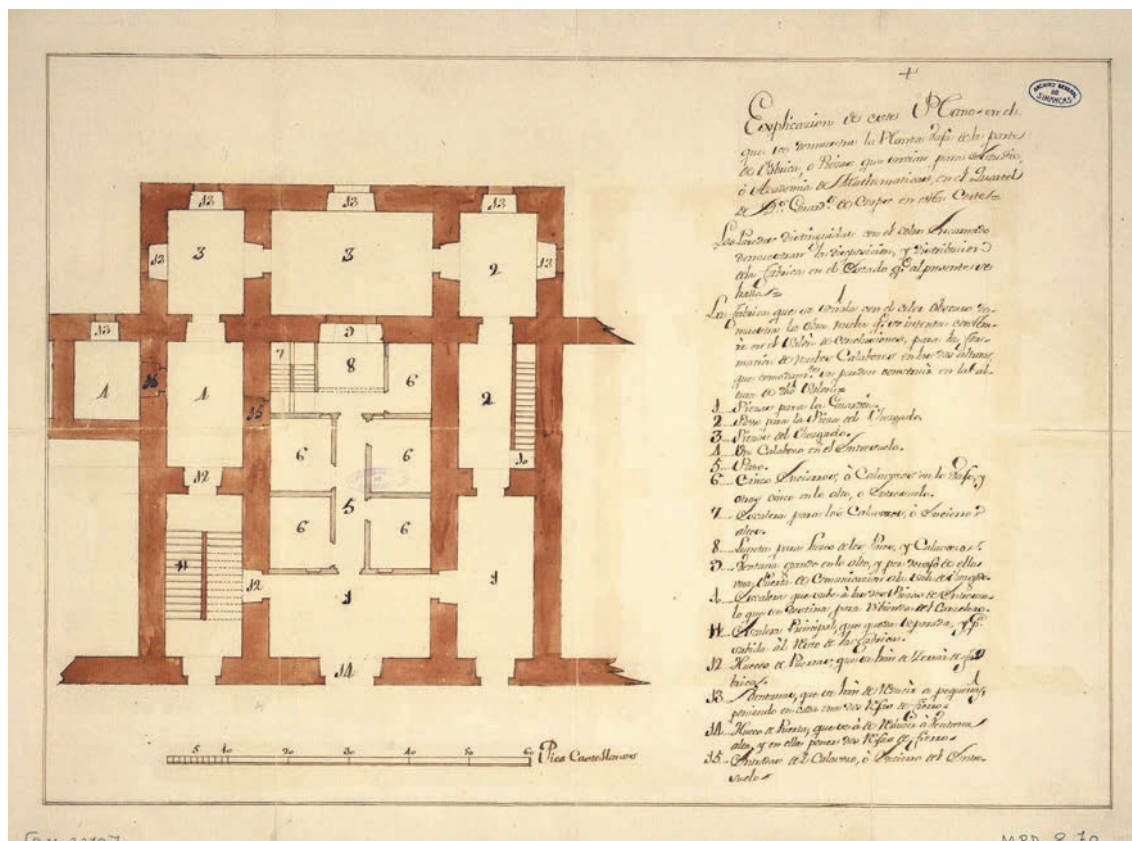 +
ARCHIVO GENERAL
DE
SIMANCAS
Explicacion de este Plano en el
que se demuestra la Planta Baja de la parte
de Fabrica, o Piezas que servian para Estudio,
ò Academia de Mathematicas, en el Quartel
de Rs. Guards. de Corps en esta Corte=
Las Paredes distinguidas con el color Encarnado
demuestran la disposicion, y distribucion
de la Fabrica en el Estado qe. al presente se
halla=
La Fabrica que se señala con el color obscuro de-
muestra la obra nueba qe. se intenta
en el Salon de para la for-
macion de nuebos Calabozos en las dos alturas,
que comodamte. se pueden construir en la al-
tura de dho Salon=
1 Piezas para la Guardia.
2 Paso para la Pieza del Juzgado.
3 Piezas del Juzgado.
4 Un Calabozo en el Entresuelo.
5 Paso.
6 Cinco Encierros, ò Calabozos en lo Bajo, y
otros cinco en lo alto, o Entresuelo.
7 Escalera para los Calabozos, ò Encierros
altos.
8 para de los Pasos, y Calabozos.
9 Ventana grande en lo alto, y por debajo de ella
una Puerta de Comunicacion a la Sala de Juzgado.
10 Escalera que sube à las dos Piezas de Entresue-
lo que se destina para Vivienda del Carcelero.
11 Escalera Principal, que queda separada, y pa.
subida àl Resto de la Fabrica.
12 Huecos de Puertas, que se han de Cerrar de fa-
brica.
13 Ventanas, que se han de Reducir a pequeñas,
poniendo en cada una dos Rejas de fierro.
14 Hueco de Puerta, que se à de Reducir à Ventana
alta, y en ella poner dos Rejas de fierro.
15 Entradas del Calabozo, ò Encierro del Entre-
suelo.
13 13 13
13 3 3 2 13
13 9
7 8 6
1 16 1 15 2
6 6 10
12 5
6 6
11 12 1 1
14
5 10 20 30 40 50 60 Pies Castellanos